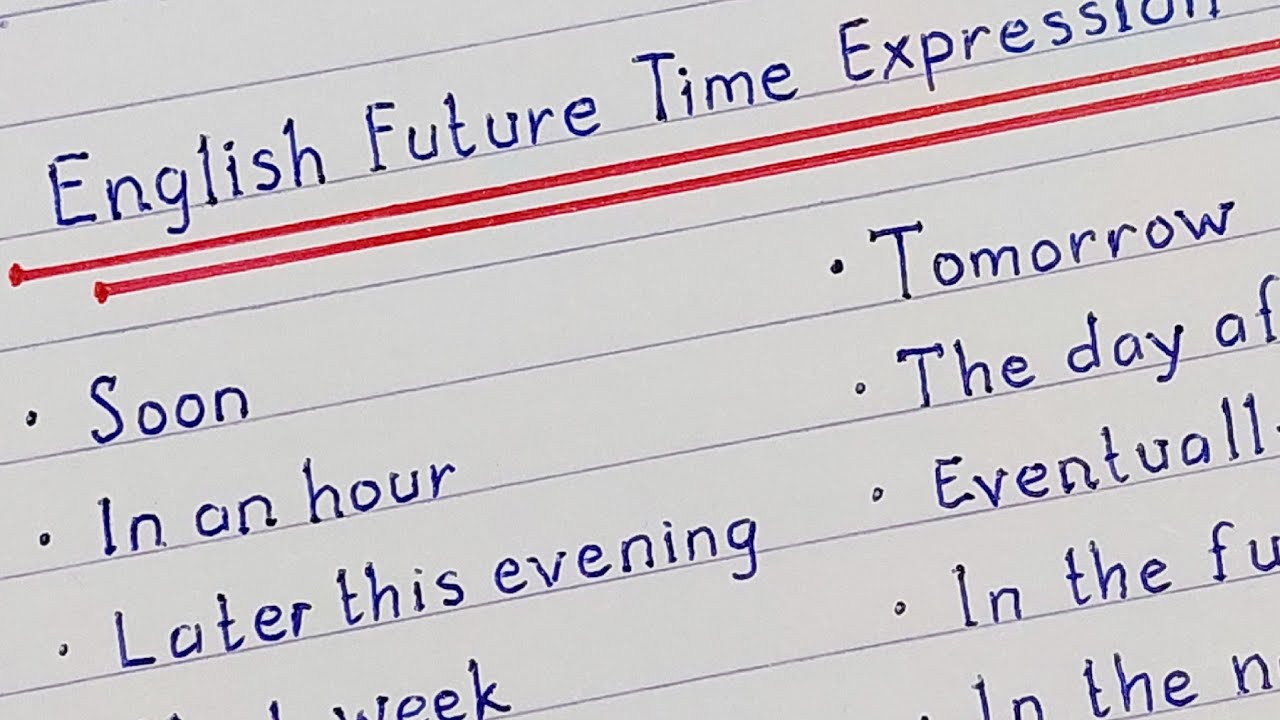 English Future Time Expression
Soon
In an hour
Later this evening
week
Tomorrow
The day
In the
In the